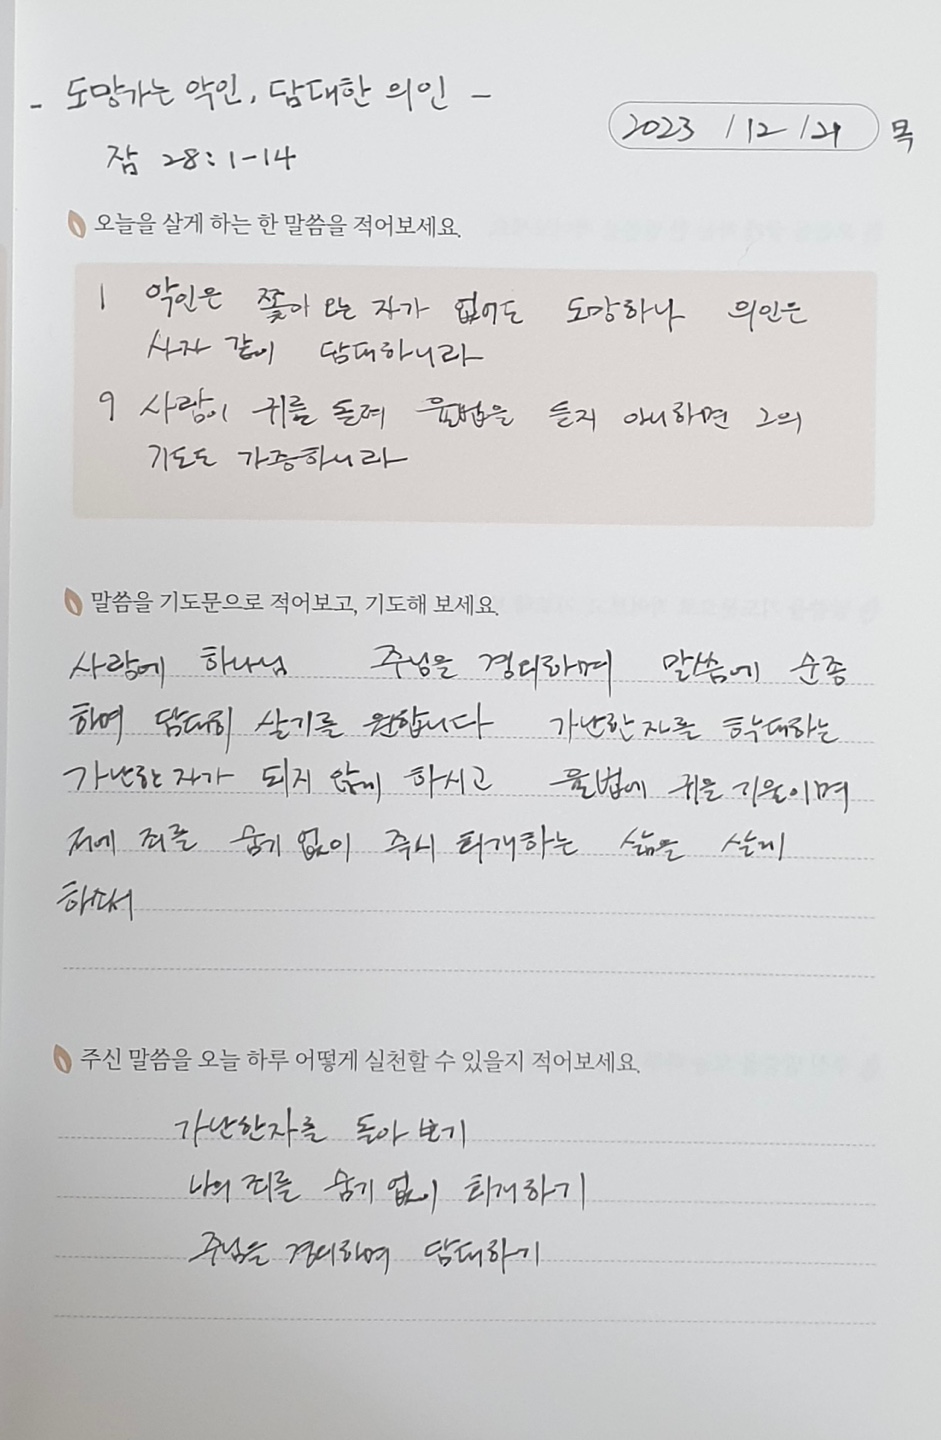 - 도망가는 악인, 담대한 의인 -
2023 / 12 / 21 목
잠 28:1-14
오늘을 살게 하는 한 말씀을 적어보세요.
1 악인은 쫓아 오는 자가 없어도 도망하나 의인은
사자 같이 담대하니라
9 사람이 귀를 돌려 율법을 듣지 아니하면 그의
기도도 가증하니라
말씀을 기도문으로 적어보고, 기도해 보세요.
사랑에 하나님 주님을 경외하며 말씀에 순종
하며 담대히 살기를 원합니다 가난한 자를 학대하는
가난한 자가 되지 않게 하시고 율법에 귀을 기울이며
저에 죄를 숨기 없이 즉시 회개하는 삶을 살게
하소서
주신 말씀을 오늘 하루 어떻게 실천할 수 있을지 적어보세요.
가난한자를 돌아 보기
나의 죄를 숨기 없이 회개하기
주님을 경외하며 담대하기